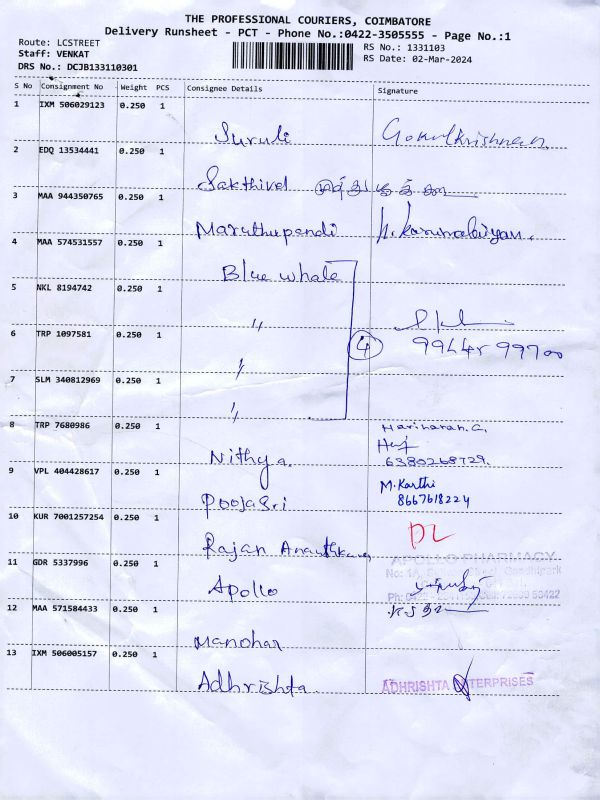 THE PROFESSIONAL COURIERS, COIMBATORE
Delivery Runsheet - PCT - Phone No.:0422-3505555 - Page No.:1
Route: LCSTREET
Staff: VENKAT
DRS No.: DCJB133110301
RS No.: 1331103
RS Date: 02-Mar-2024
S No Consignment No Weight PCS Consignee Details Signature
1 IXM 506029123 0.250 1
Suruli Gokulkrishnan
2 EDQ 13534441 0.250 1
Sakthivel
3 MAA 944350765 0.250 1
Maruthupandi
4 MAA 574531557 0.250 1
Blue whale
5 NKL 8194742 0.250 1
〃
6 TRP 1097581 0.250 1
4 99445 99700
〃
7 SLM 340812969 0.250 1
〃
8 TRP 7680986 0.250 1 Hariharan.G.
Nithya. 6380268729.
9 VPL 404428617 0.250 1 M.Karthi
Poojasri 8667618224
10 KUR 7001257254 0.250 1 DL
Rajan
11 GDR 5337996 0.250 1 APOLLO PHARMACY
Apollo
12 MAA 571584433 0.250 1
Manohar
13 IXM 506005157 0.250 1
Adhrishta. ADHRISHTA ENTERPRISES